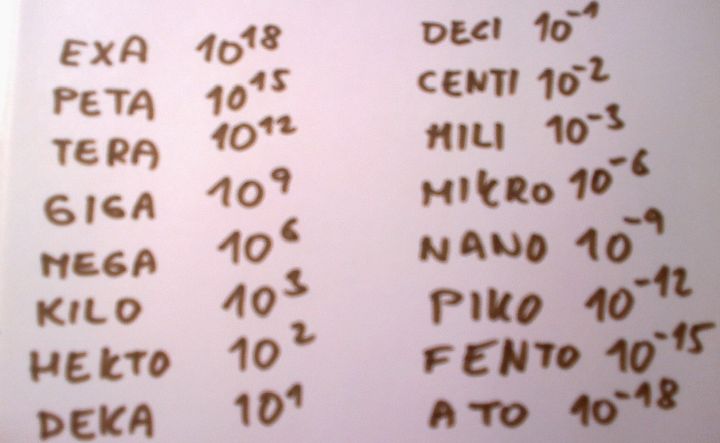 EXA 10^18
PETA 10^15
TERA 10^12
GIGA 10^9
MEGA 10^6
KILO 10^3
HEKTO 10^2
DEKA 10^1
DECI 10^-1
CENTI 10^-2
MILI 10^-3
MIKRO 10^-6
NANO 10^-9
PIKO 10^-12
FENTO 10^-15
ATO 10^-18